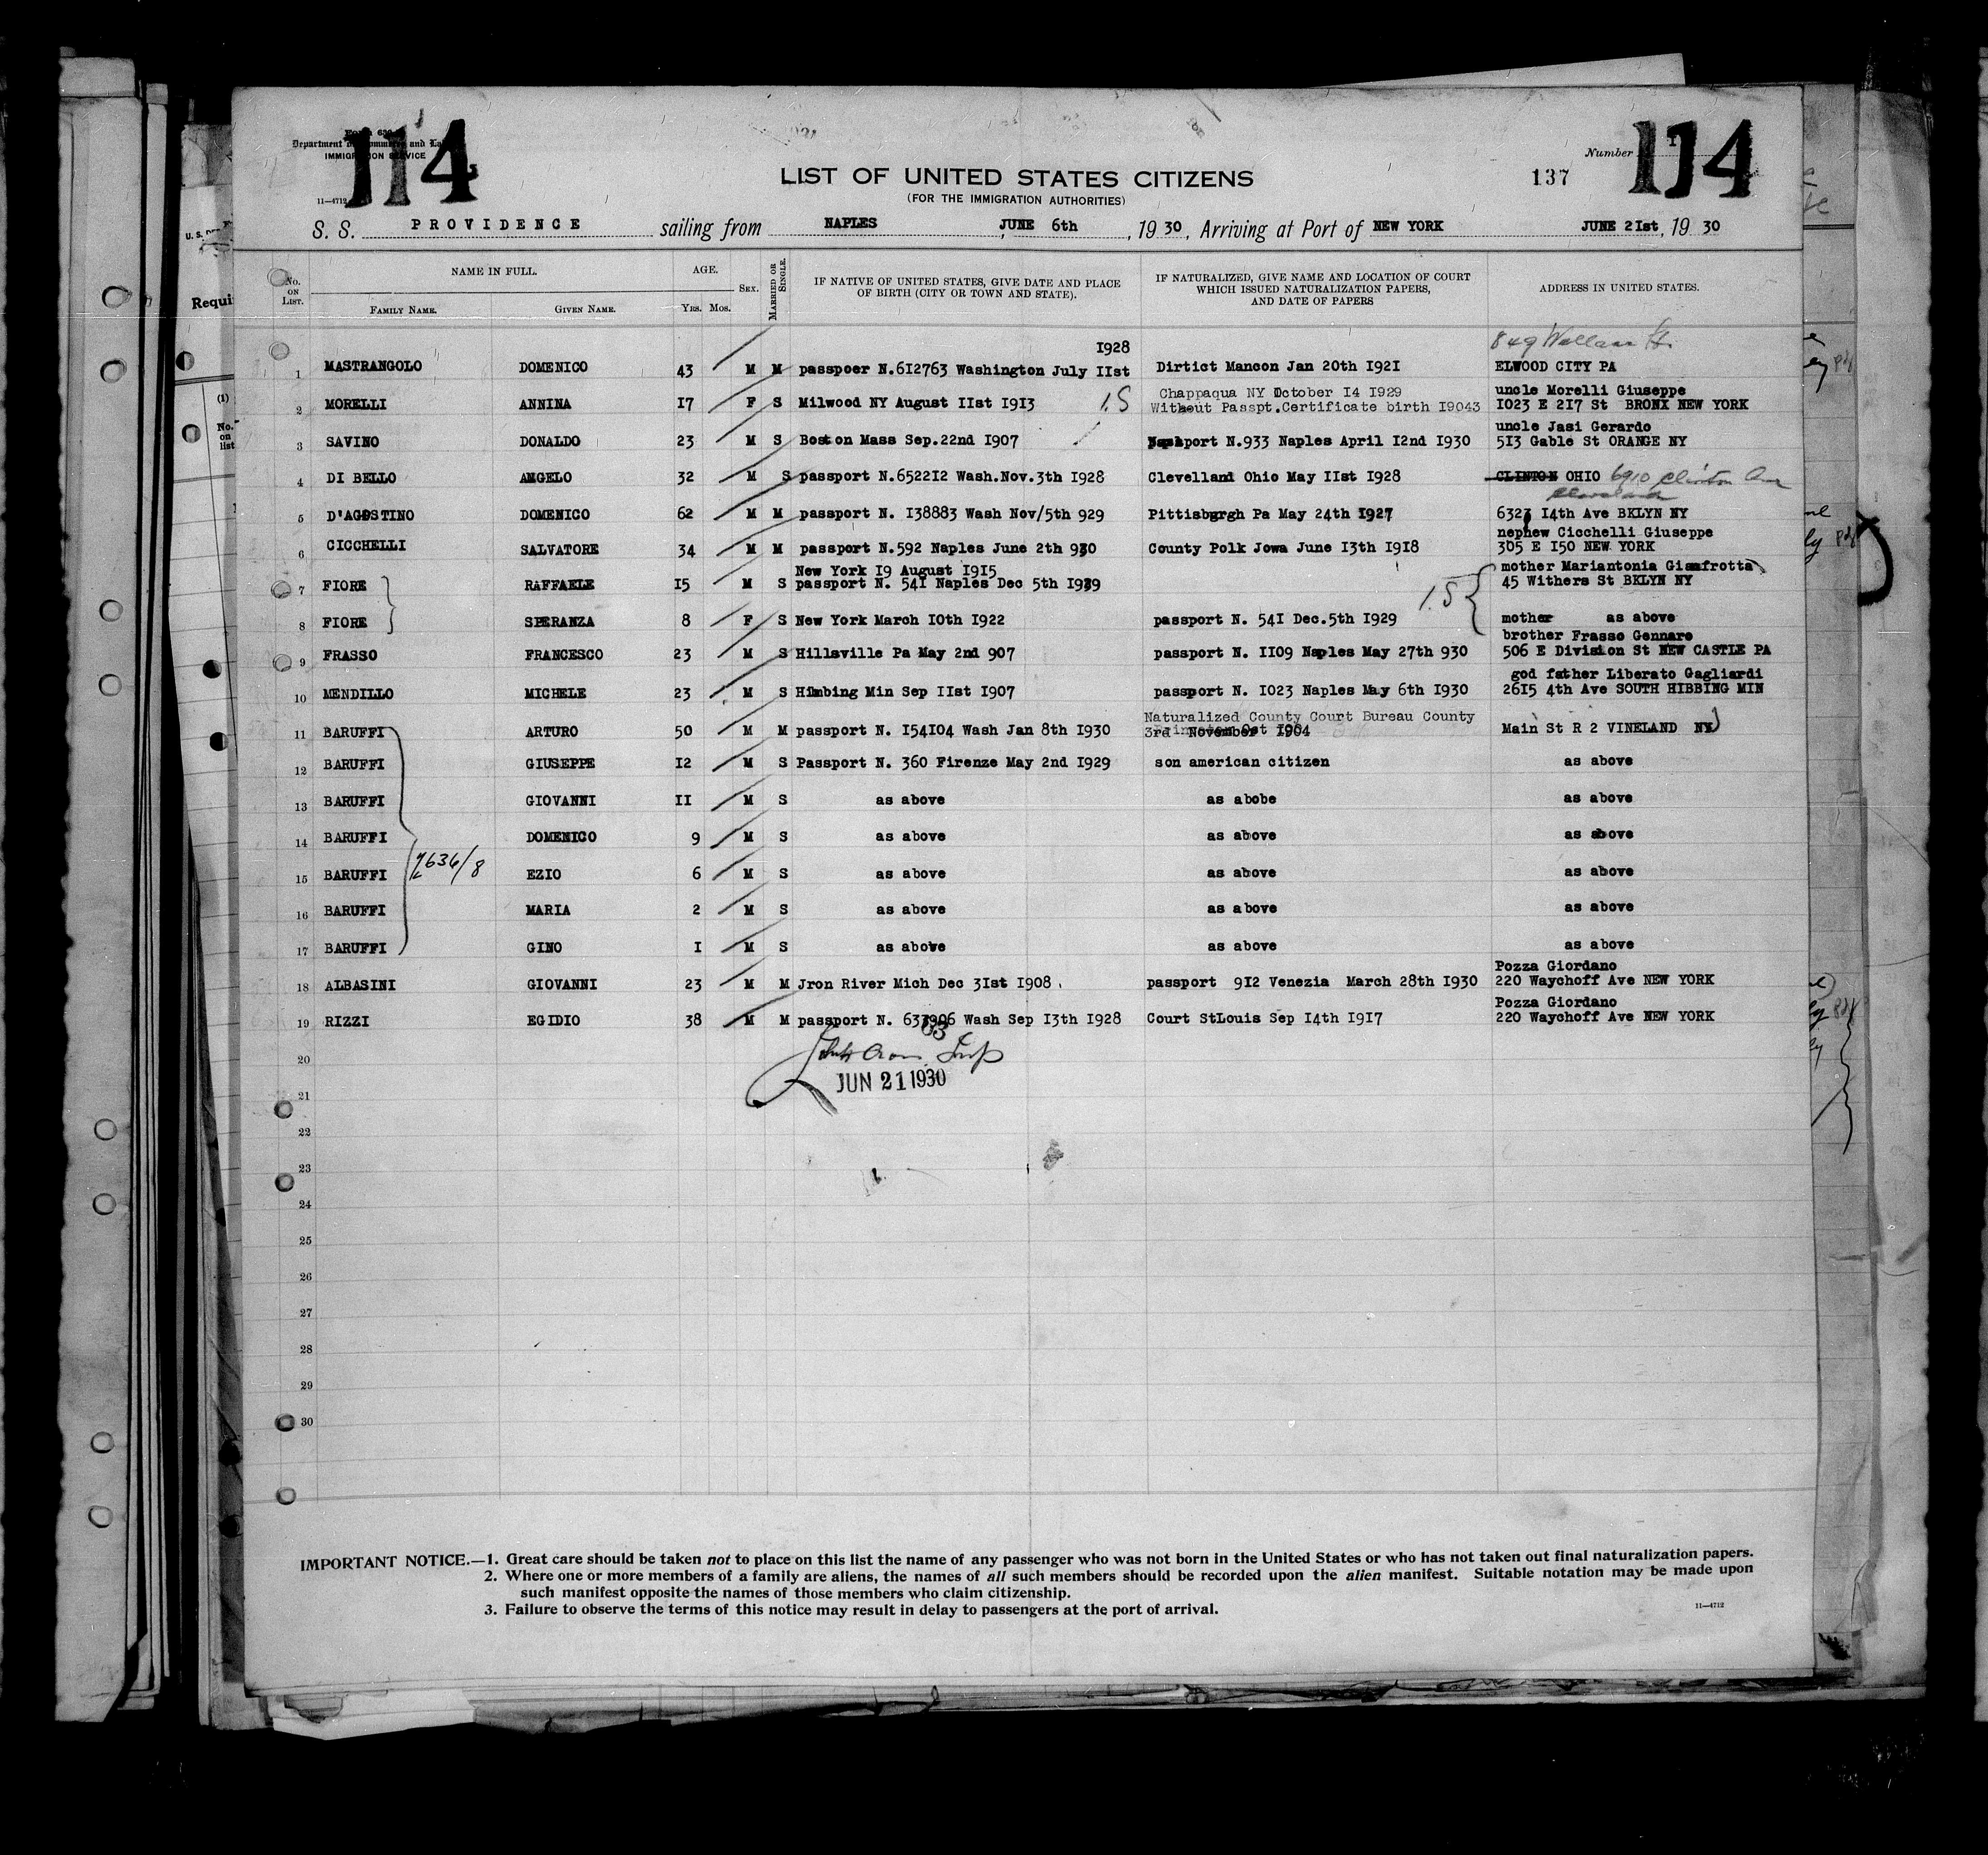 114
Department of Commerce and La
IMMIGRATION SERVICE
11—4712
LIST OF UNITED STATES CITIZENS
(FOR THE IMMIGRATION AUTHORITIES)
137
Number
114
S. S. PROVIDENCE sailing from NAPLES JUNE 6th, 19 30, Arriving at Port of NEW YORK JUNE 2Ist, 19 30
No. ON LIST. NAME IN FULL. AGE. SEX. MARRIED OR SINGLE. IF NATIVE OF UNITED STATES, GIVE DATE AND PLACE OF BIRTH (CITY OR TOWN AND STATE). IF NATURALIZED, GIVE NAME AND LOCATION OF COURT WHICH ISSUED NATURALIZATION PAPERS, AND DATE OF PAPERS ADDRESS IN UNITED STATES.
FAMILY NAME. GIVEN NAME. YRS. MOS.
I928 849
1 MASTRANGOLO DOMENICO 43 M M passpoer N.6I2763 Washington July IIst Dirtict Mancon Jan 20th I92I ELWOOD CITY PA
Chappaqua NY October I4 I929 uncle Morelli Giuseppe
2 MORELLI ANNINA I7 F S Milwood NY August IIst I9I3 Without Passpt.Certificate birth I9043 I023 E 2I7 St BRONX NEW YORK
uncle Jasi Gerardo
3 SAVINO DONALDO 23 M S Boston Mass Sep.22nd I907 Passport N.933 Naples April I2nd I930 5I3 Gable St ORANGE NY
4 DI BELLO ANGELO 32 M S passport N.6522I2 Wash.Nov.3th I928 Clevelland Ohio May IIst I928 CLINTON OHIO 6910 Clinton Ave
Cleveland
5 D'AGOSTINO DOMENICO 62 M M passport N. I38883 Wash Nov/5th 929 Pittisburgh Pa May 24th I927 6323 I4th Ave BKLYN NY
nephew Cicchelli Giuseppe
6 CICCHELLI SALVATORE 34 M M passport N.592 Naples June 2th 930 County Polk Jowa June I3th I9I8 305 E I50 NEW YORK
New York I9 August I9I5 mother Mariantonia Giamfrotta
7 FIORE RAFFAELE I5 M S passport N. 54I Naples Dec 5th I929 45 Withers St BKLYN NY
8 FIORE SPERANZA 8 F S New York March I0th I922 passport N. 54I Dec.5th I929 mother as above
brother Frasso Gennaro
9 FRASSO FRANCESCO 23 M S Hillsville Pa May 2nd 907 passport N. II09 Naples May 27th 930 506 E Division St NEW CASTLE PA
god father Liberato Gagliardi
10 MENDILLO MICHELE 23 M S Himbing Min Sep IIst I907 passport N. I023 Naples May 6th I930 26I5 4th Ave SOUTH HIBBING MIN
Naturalized County Court Bureau County
11 BARUFFI ARTURO 50 M M passport N. I54I04 Wash Jan 8th I930 3rd November I904 Main St R 2 VINELAND NY
12 BARUFFI GIUSEPPE I2 M S Passport N. 360 Firenze May 2nd I929 son american citizen as above
13 BARUFFI GIOVANNI II M S as above as abobe as above
14 BARUFFI DOMENICO 9 M S as above as above as above
15 BARUFFI EZIO 6 M S as above as above as above
16 BARUFFI MARIA 2 M S as above as above as above
17 BARUFFI GINO I M S as above as above as above
Pozza Giordano
18 ALBASINI GIOVANNI 23 M M Jron River Mich Dec 3Ist I908 passport 9I2 Venezia March 28th I930 220 Waychoff Ave NEW YORK
Pozza Giordano
19 RIZZI EGIDIO 38 M M passport N. Wash Sep I3th I928 Court StLouis Sep I4th I9I7 220 Waychoff Ave NEW YORK
20
JUN 21 1930
21
22
23
24
25
26
27
28
29
30
IMPORTANT NOTICE.—1. Great care should be taken not to place on this list the name of any passenger who was not born in the United States or who has not taken out final naturalization papers.
2. Where one or more members of a family are aliens, the names of all such members should be recorded upon the alien manifest. Suitable notation may be made upon
such manifest opposite the names of those members who claim citizenship.
3. Failure to observe the terms of this notice may result in delay to passengers at the port of arrival.
11—4712